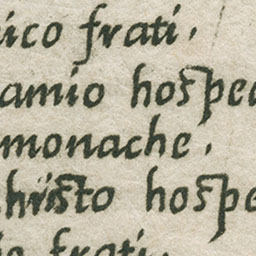 ico frati.
amio hospe
monache.
hristo hospe
frati.